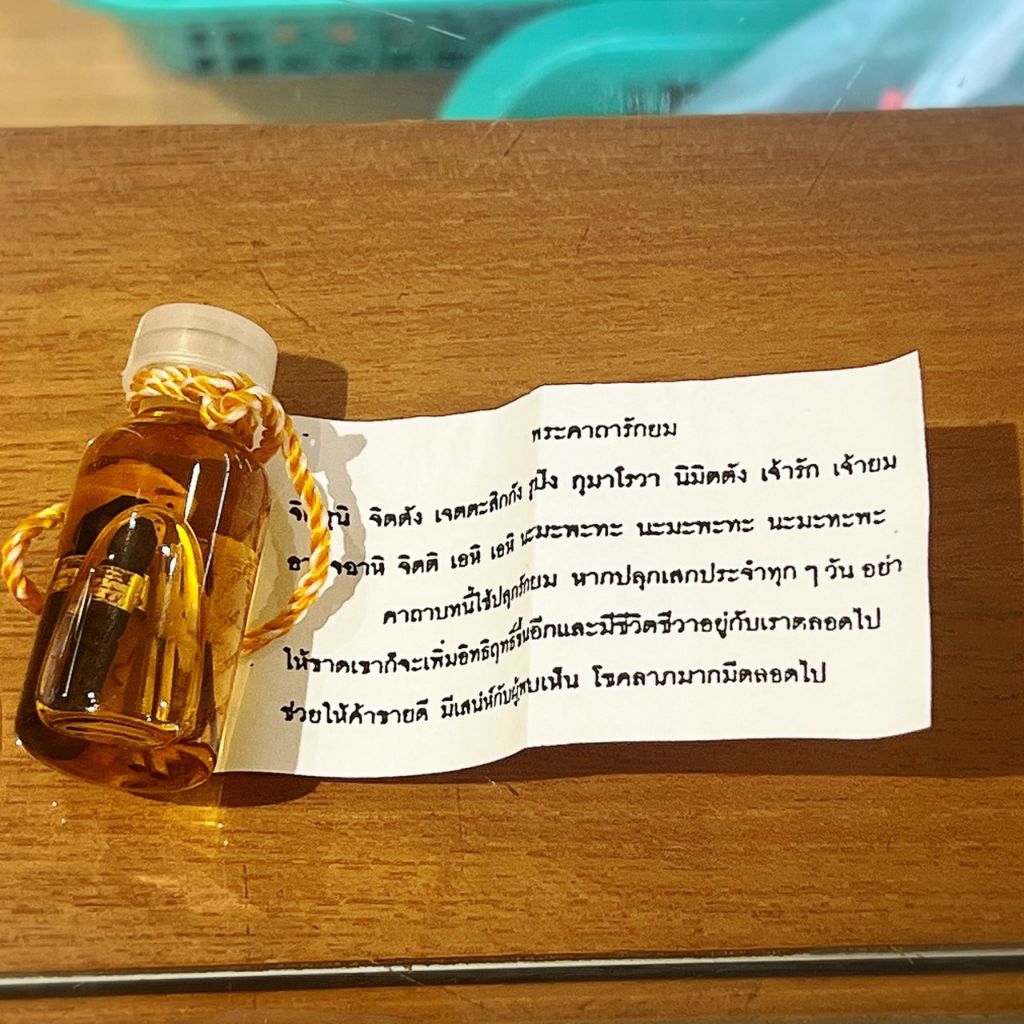 พระคาถารักยม
จิตตัง เจตตะสิกกัง รูปัง กุมาโรวา นิมิตตัง เจ้ารัก เจ้ายม
จิตติ เอหิ เอหิ นะมะพะทะ นะมะพะทะ นะมะทะพะ
คาถาบทนี้ใช้ปลุกรักยม หากปลุกเสกประจำทุก ๆ วัน อย่า
ให้ขาดเขาก็จะเพิ่มอิทธิฤทธิ์ขึ้นอีกและมีชีวิตชีวาอยู่กับเราตลอดไป
ช่วยให้ค้าขายดี มีเสน่ห์กับผู้พบเห็น โชคลาภมากมีตลอดไป